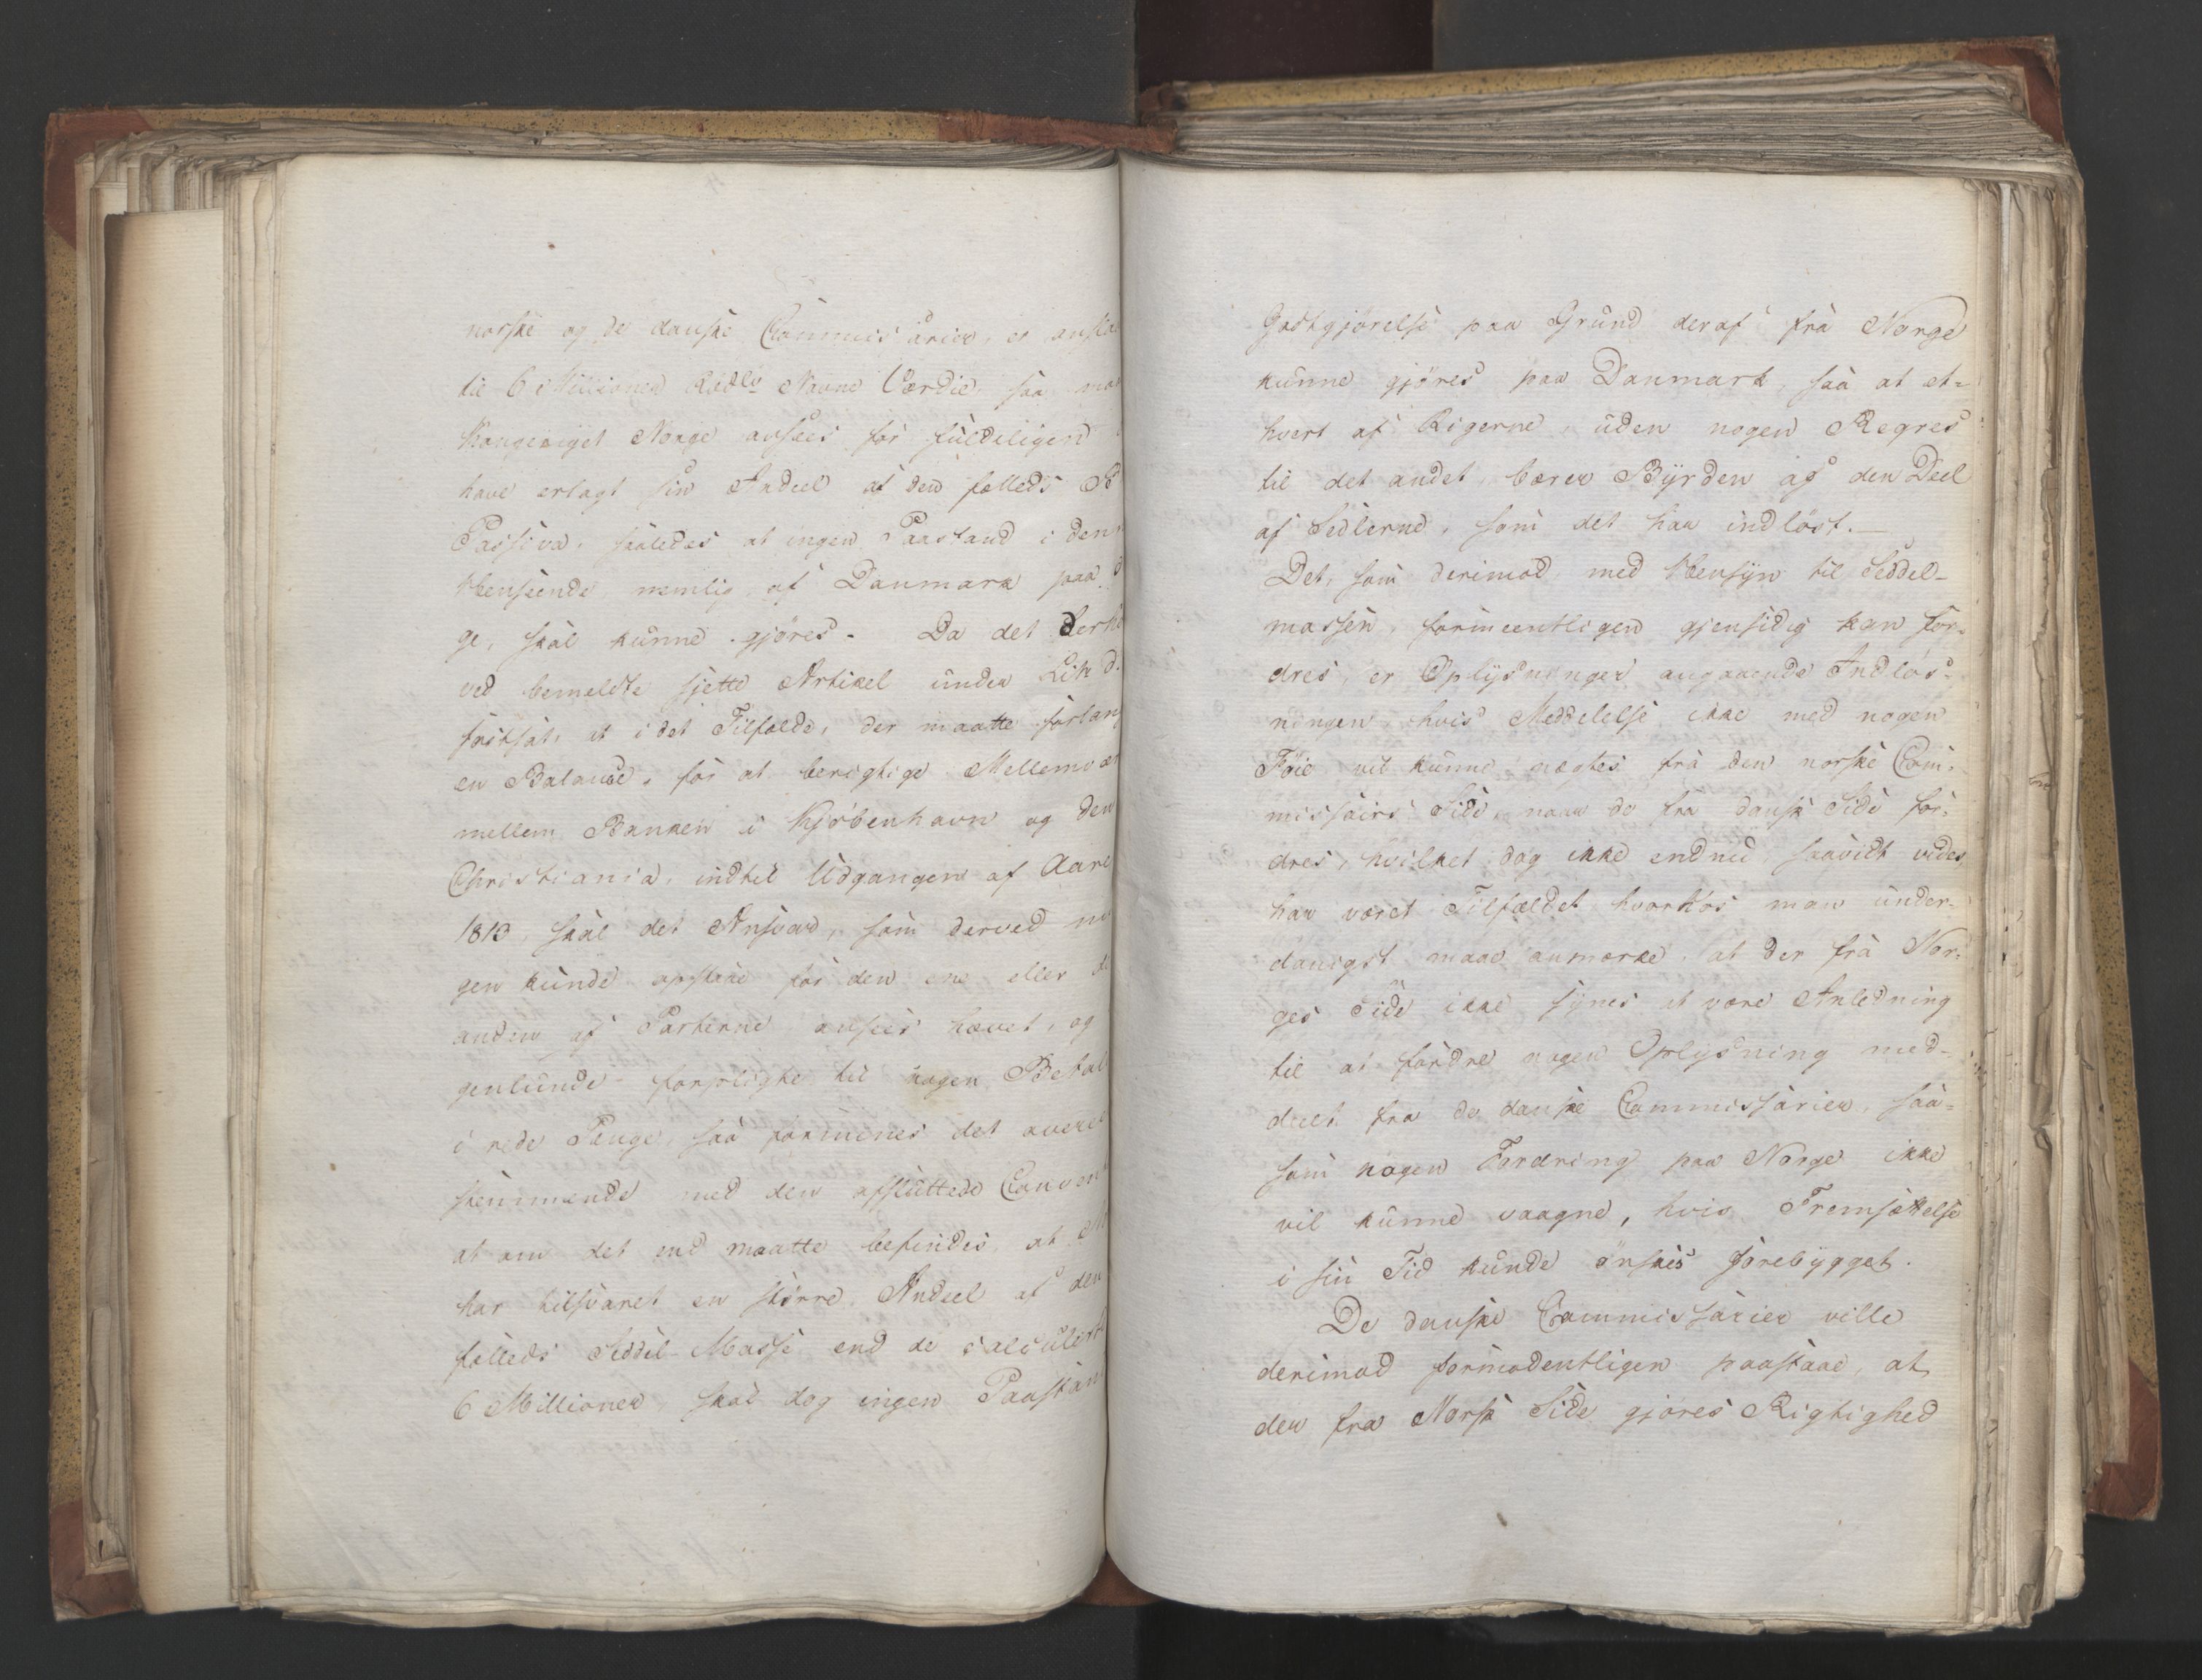 norske og de danske Commissairer, er ansla
til 6 Millioner Rbdlr Navne Værdie, saa maa
Kongeriget Norge ansees for fuldeligen
have erlagt sin Andeel af den fælleds B
Passiva, saaledes at ingen Paastand i denn
Henseende, nemlig af Danmark paa
ge, skal kunne gjøres. Da det derhos
ved bemeldte sjette Artikel under Litr d.
fritsat, at i det Tilfælde, der maatte forlan
en Balance, for at berigtige Mellemvær
mellem Banken i Kjøbenhavn og den
Christiania, indtil Udgangen af Aare
1813, skal det Ansvar, som derved no
gen kunde opstaae for den ene eller d
anden af Parterne ansees hævet, og
genlunde forpligte til nogen Betal
i rede Penge, saa formenes det overee
stemmende med den afsluttede Conven
at om det end maatte befindes, at
har tilsvaret en større Andeel af den
fælleds Seddel-Masse end de calculerte
6 Millioner, skal dog ingen Paastan
Godtgjörelse paa Grund deraf fra Norge
kunne gjöres paa Danmark, saa at et=
hvert af Rigerne, uden nogen Regres
til det andet, bærer Byrden af den Deel
af Sedlerne, som det har indlöst.—
Det, som derimod, med Hensyn til Seddel-
massen, formeentligen gjensidig kan for-
dres, er Oplysninger angaaende Indløs-
ningen, hvis Meddelelse ikke med nogen
Föie vil kunne nægtes fra den norske Com-
missairs Side, naar de fra dansk Side for-
dres, hvilket dog ikke endnu saavidt vides,
har været Tilfældet, hvorhos man under-
danigst maae anmærke, at der fra Nor-
ges Side ikke synes at være Anledning
til at fordre nogen Oplysning med-
deelt fra de danske Commissarier, saa=
som nogen Fordring paa Norge ikke
vil kunne vaagne, hvis Fremsættelse
i sin Tid kunde önskes forebygget.
De danske Commissarier ville
derimod formodentligen paastaae, at
der fra Norsk Side gjöres Rigtighed